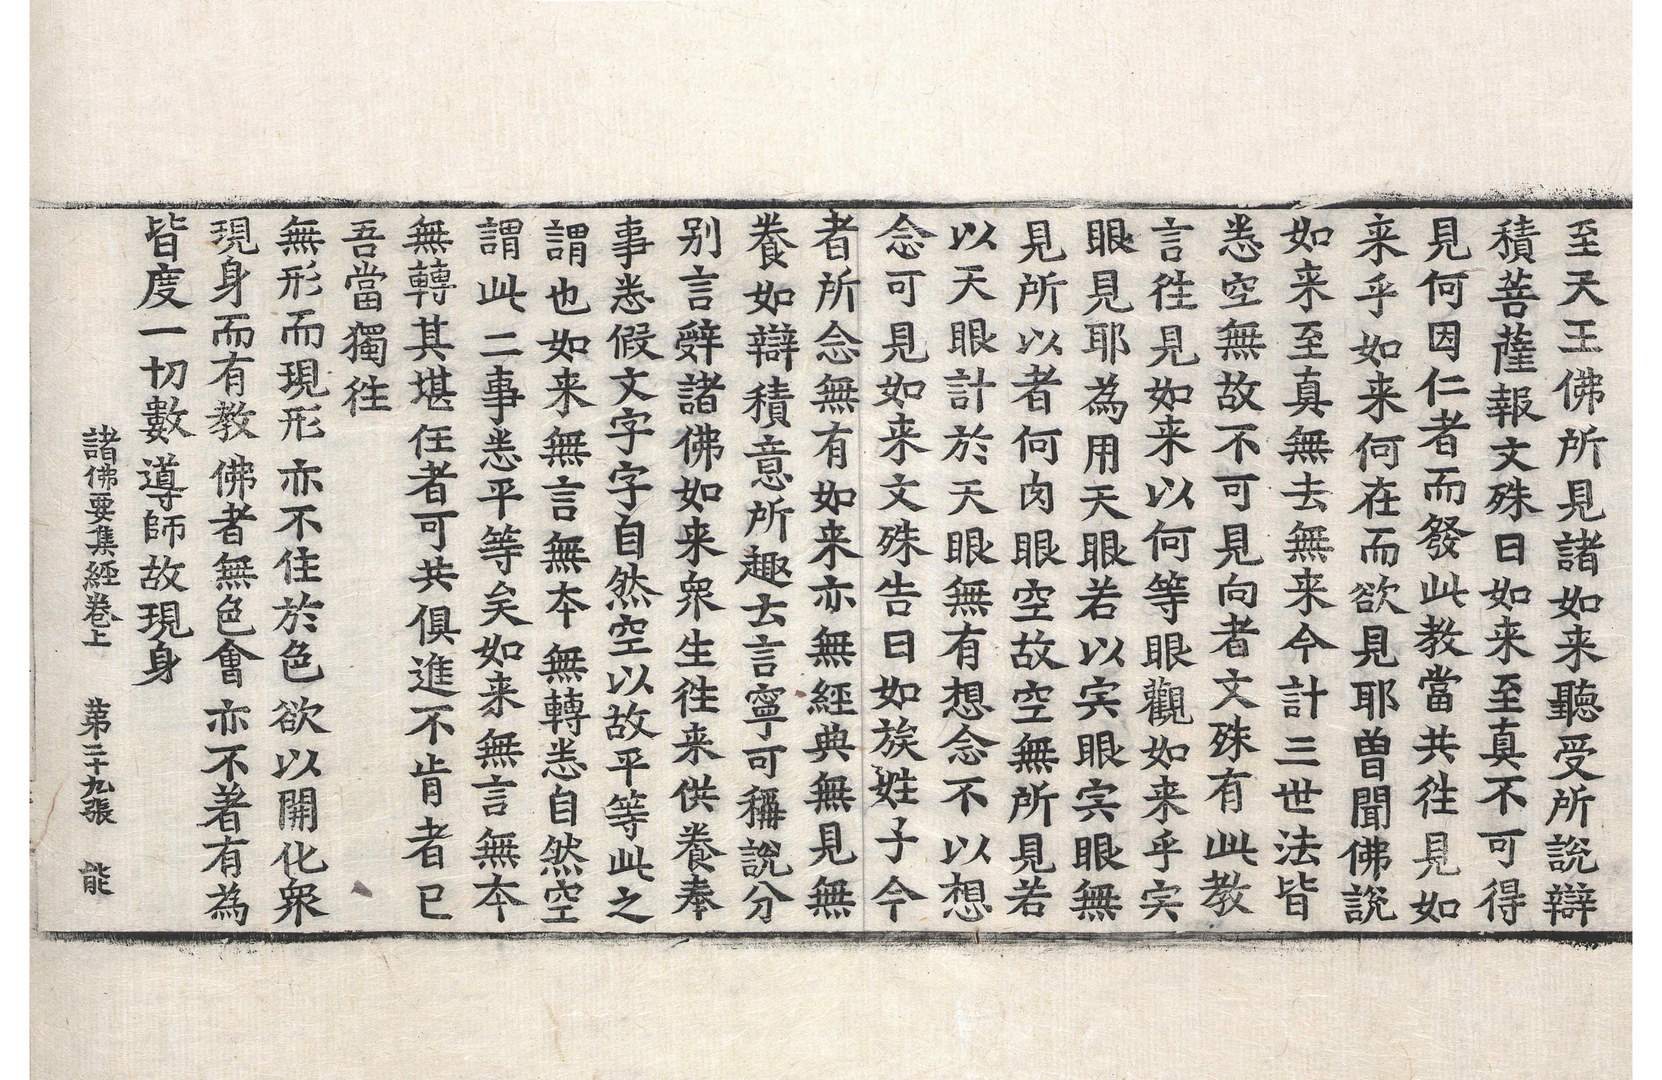 至天王佛所見諸如来聽受所說辯
積菩薩報文殊曰如来至真不可得
見何因仁者而發此教當共往見如
来乎如来何在而欲見耶曽聞佛說
如来至真無去無来今計三世法皆
悉空無故不可見向者文殊有此教
言往見如来以何等眼觀如来乎宍
眼見耶為用天眼若以宍眼宍眼無
見所以者何肉眼空故空無所見若
以天眼計於天眼無有想念不以想
念可見如来文殊告曰如族姓子今
者所念無有如来亦無經典無見無
養如辯積意所趣去言寧可稱說分
别言辭諸佛如来衆生往来供養奉
事悉假文字字自然空以故平等此之
謂也如来無言無本無轉悉自然空
謂此二事悉平等矣如来無言無本
無轉其堪任者可共俱進不肯者已
吾當獨往
無形而現形亦不住於色欲以開化衆
現身而有教佛者無色會亦不著有為
皆度一切數導師故現身
諸佛要集經卷上 第二十九張 能